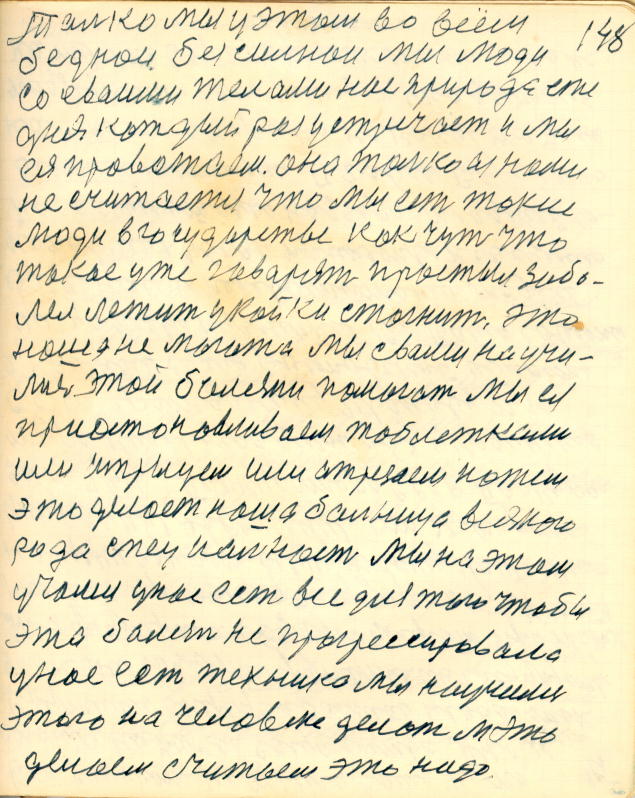 Толко мы у этом во всём 148
бедной безсилной мы люди
со сваими телами нас природа эте
дня каждый раз устречает и мы
ея провожаем. она толко из нами
не считается что мы ест такие
люди в государстве как чут что
такое уже говарят простыл забо-
лел летит у койки стогнит. это
наше не могота мы свами научи-
лис этой болезни помогат мы ея
приостонавливаем таблетками
или упрыцем или отрезаем ножем
это делает наша балница всякого
рода спецыалност мы на этом
учоми у нас ест все для того чтобы
эта болезн не прогрессировала
у нас ест техника мы научилис
этого на человеке делат мы это
делаем считаем это надо